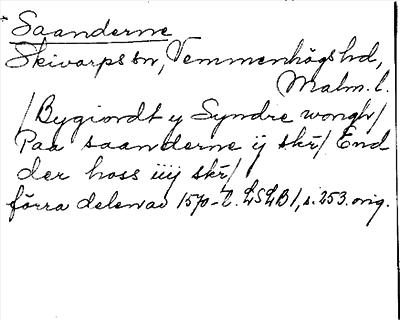 Saanderne
Skivarps sn, Vemmenhögs hd,
Malm. l.
/Bygiordt y Syndre wongh/
Paa saanderne ij skr/ End-
der hoss iiij skr/
förra delen av 1570-t. LSLB 1, s. 253. orig.